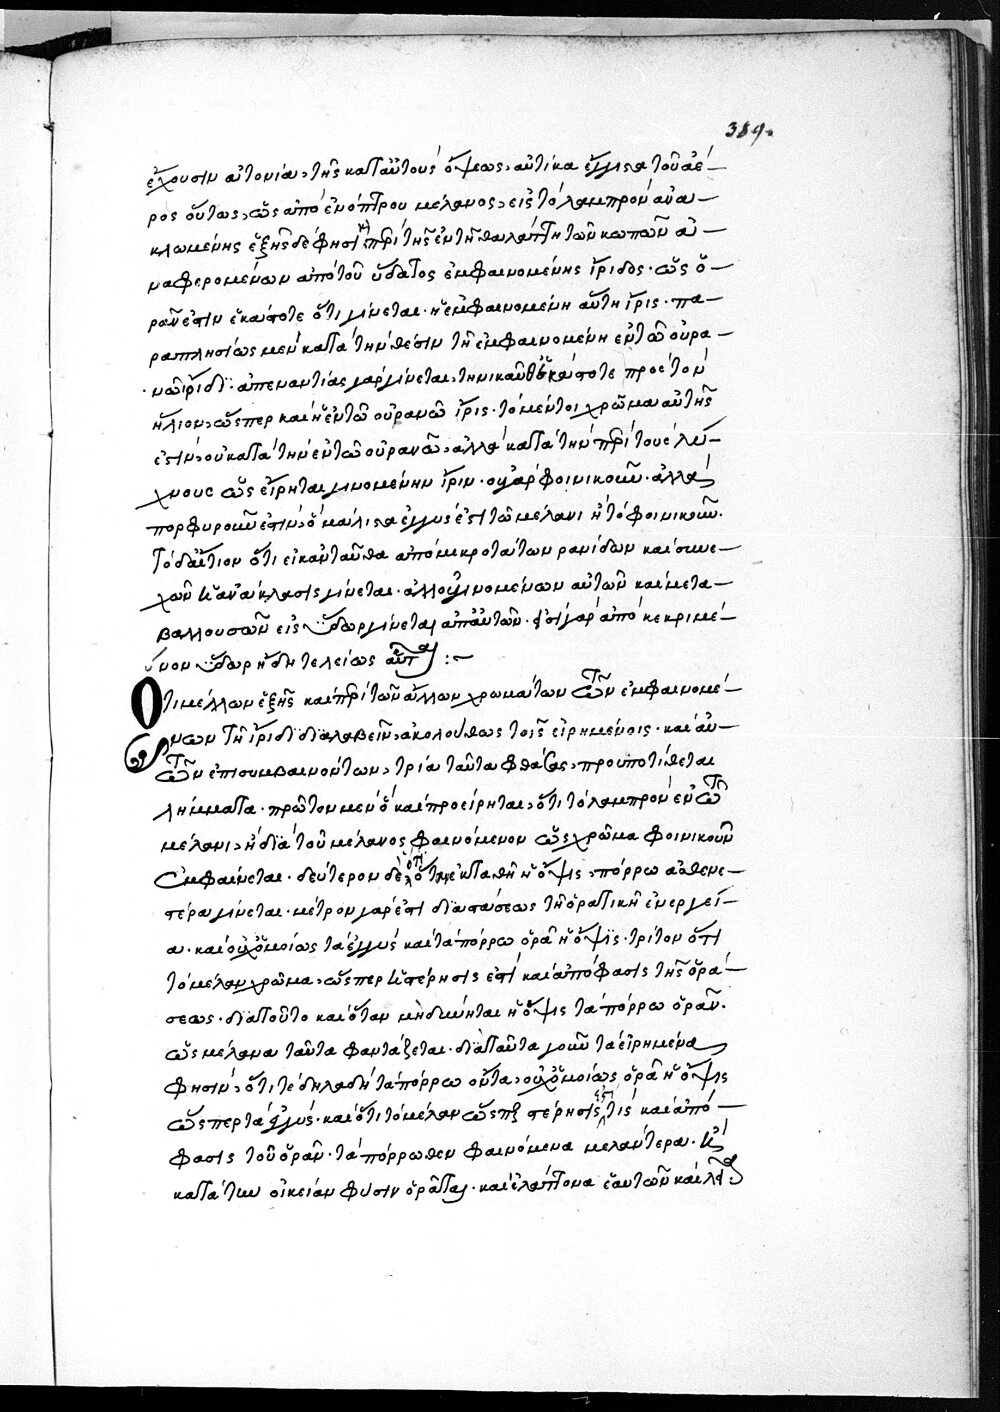 389
ἔχουσιν εὐτονίαν τῆς κατ' αὐτοὺς ὄψεως, αὐτίκα ἔγγιστα τοῦ ἀέ-
ρος οὕτως, ὡς ἀπὸ ἐνόπτρου μέλανος, εἰς τὸ λαμπρὸν ἀνα-
κλωμένης ἑξῆς δέ φησι καὶ περὶ τῆς ἐν τῆ θαλάττη τῶν κωπῶν ἀ-
ναφερομένων ἀπὸ τοῦ ὕδατος ἐμφαινομένης ἴριδος. ὡς ὁ-
ρᾶν ἔστιν ἑκάστοτε ὅτι γίνεται. ἡ ἐμφαινομένη αὕτη ἶρις. πα-
ραπλησίως μὲν κατὰ τὴν θέσιν τῆ ἐμφαινομένη ἐν τῶ οὐρα-
νῶ ἴριδι. ἀπεναντίας γὰρ γίνεται τηνικαῦθ' ἑκάστοτε πρὸς τὸν
ἥλιον, ὥσπερ καὶ ἡ ἐν τῶ οὐρανῶ ἶρις. τὸ μέντοι χρῶμα αὐτῆς
ἐστὶν, οὐ κατὰ τὴν ἐν τῶ οὐρανῶ, ἀλλὰ κατὰ τὴν περὶ τοὺς λύ-
χνους ὡς εἴρηται γινομένην ἶριν. οὐ γὰρ φοινικοῦν. ἀλλὰ
πορφυροῦν ἐστὶν, ὃ μάλιστα ἐγγύς ἐστι τῶ μέλανι ἢ τὸ φοινικοῦν.
τὸ δ' αἴτιον ὅτι εἰ κἀνταῦθα ἀπὸ μικροτάτων ρανίδων καὶ συνε-
χῶν ἡ ἀνάκλασις γίνεται. ἀλλ' οὐ γινομένων αὐτῶν καὶ μετα-
βαλλουσῶν εἰς ὕδωρ γίνεται ἀπ' αὐτῶν. ἔστι γὰρ ἀποκεκριμέ-
νον ὕδωρ ἤδη τελείως αὗται :~
Ὅτι μέλλων ἑξῆς καὶ περὶ τῶν ἄλλων χρωμάτων τῶν ἐμφαινομέ-
νων τῆ ἴριδι διαλαβεῖν, ἀκολούθως τοῖς εἰρημένοις. καὶ ἀπὸ
τῶν ἐπισυμβαινόντων, τρία ταῦτα φθάσας, προϋποτίθεται
λήμματα. πρῶτον μὲν ὃ καὶ προείρηται, ὅτι τὸ λαμπρὸν ἐν τῶ
μέλανι, ἢ διὰ τοῦ μέλανος φαινόμενον ὡς χρῶμα φοινικοῦν
ἐμφαίνεται. δεύτερον δὲ ὅτι ἐκταθῆ ἡ ὄψις, πόρρω ἀσθενε-
τέρα γίνεται. μέτρον γάρ ἐστι διαστάσεως τῆ ὁρατικῆ ἐνεργεί-
α. καὶ οὐχ ὁμοίως τὰ ἐγγὺς καὶ τὰ πόρρω ὁρᾶ ἡ ὄψις. τρίτον ὅτι
τὸ μέλαν χρῶμα, ὥσπερ ἡ στέρησις ἐστὶ καὶ ἀπόφασις τῆς ὁρά-
σεως. διὰ τοῦτο καὶ ὅταν μὴ δύνηται ἡ ὄψις τὰ πόρρω ὁρᾶν.
ὡς μέλανα ταῦτα φαντάζεται. διὰ ταῦτα γοῦν τὰ εἰρημένα
φησὶν, ὅτι τε δηλαδὴ τὰ πόρρω ὄντα, οὐχ ὁμοίως ὁρᾶ ἡ ὄψις
ὥσπερ τὰ ἐγγύς. καὶ ὅτι τὸ μέλαν ὥσπερ στέρησίς ἐστί τις καὶ ἀπό-
φασις τοῦ ὁρᾶν. τὰ πόρρωθεν φαινόμενα μελάντερα. ἢ
κατὰ τὴν οἰκείαν φύσιν ὁρᾶται. καὶ ἐλάττονα ἑαυτῶν καὶ